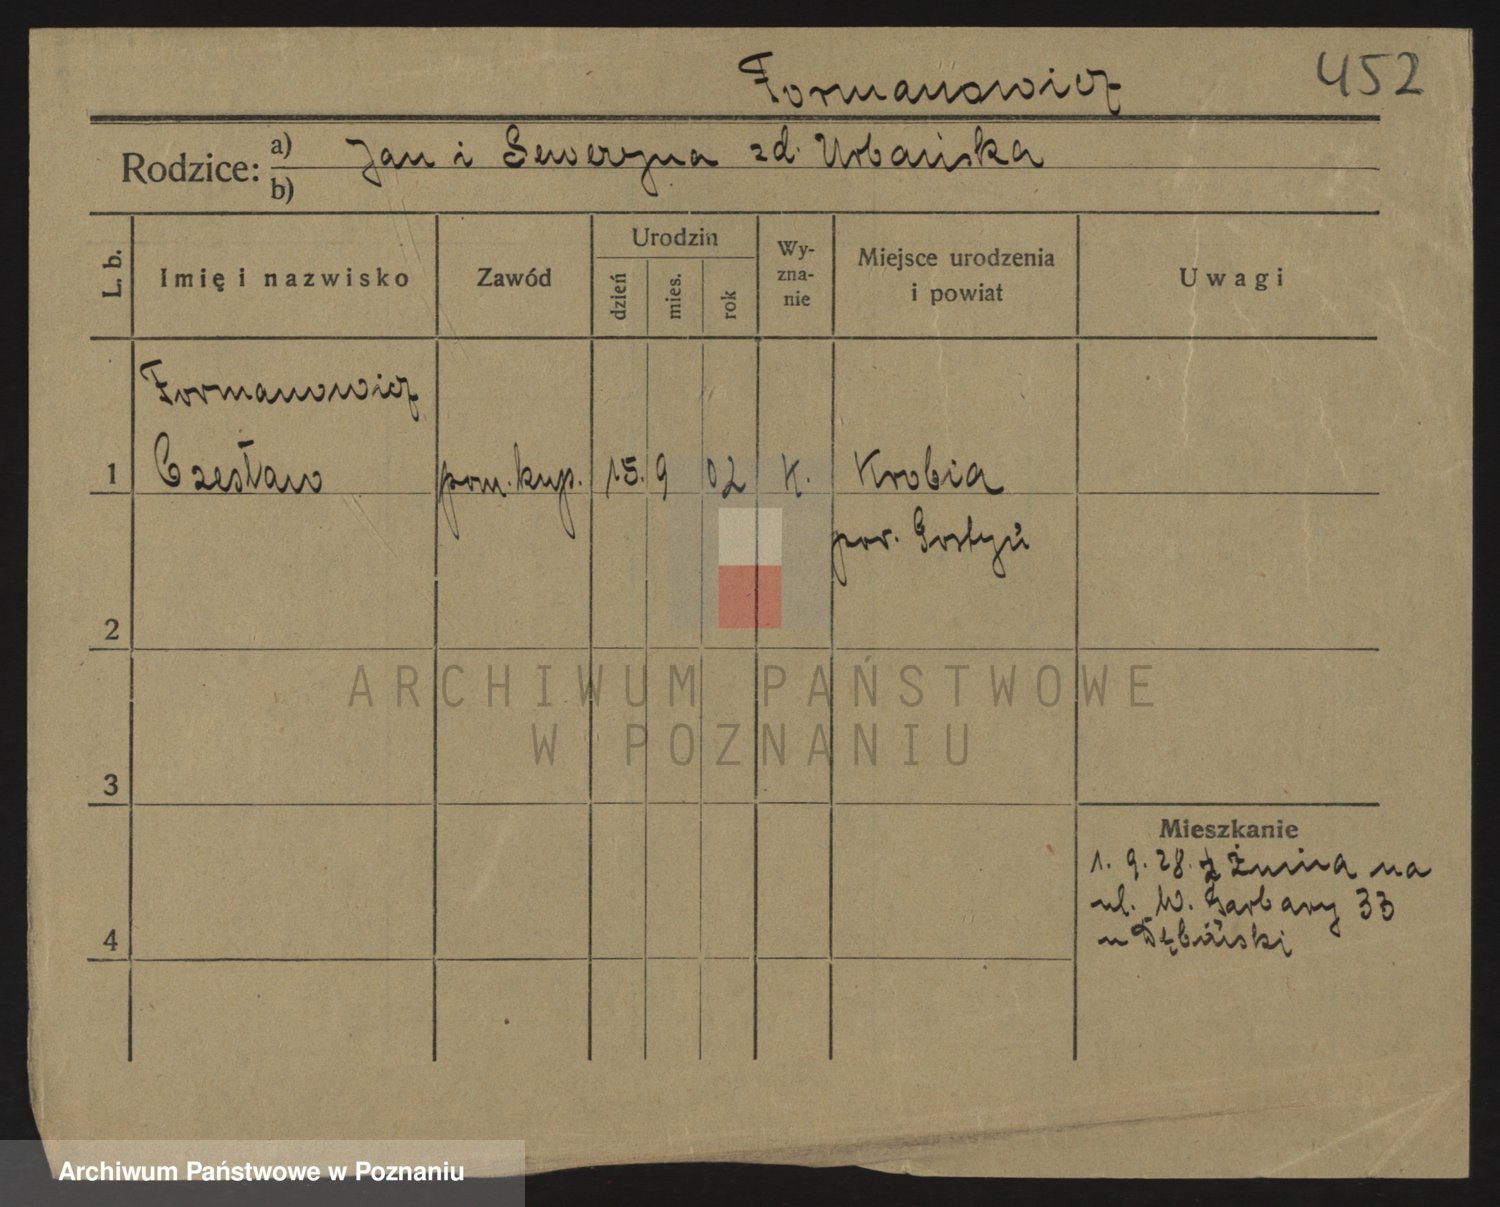 452
Formanowicz
Rodzice: a) Jan i Seweryna zd. Urbańska
b)
L. b. Imię i nazwisko Zawód Urodzin dzień mies. rok Wy-zna-nie Miejsce urodzenia i powiat Uwagi
Formanowicz
1 Czesław pom. kup. 15. 9 02 K. Krobia
pow. Gostyń
2
3
4
Mieszkanie
1. 9. 28. z Żnina na
ul. W. Garbary 33
u Dębiński
ARCHIWUM PAŃSTWOWE
W POZNANIU
Archiwum Państwowe w Poznaniu